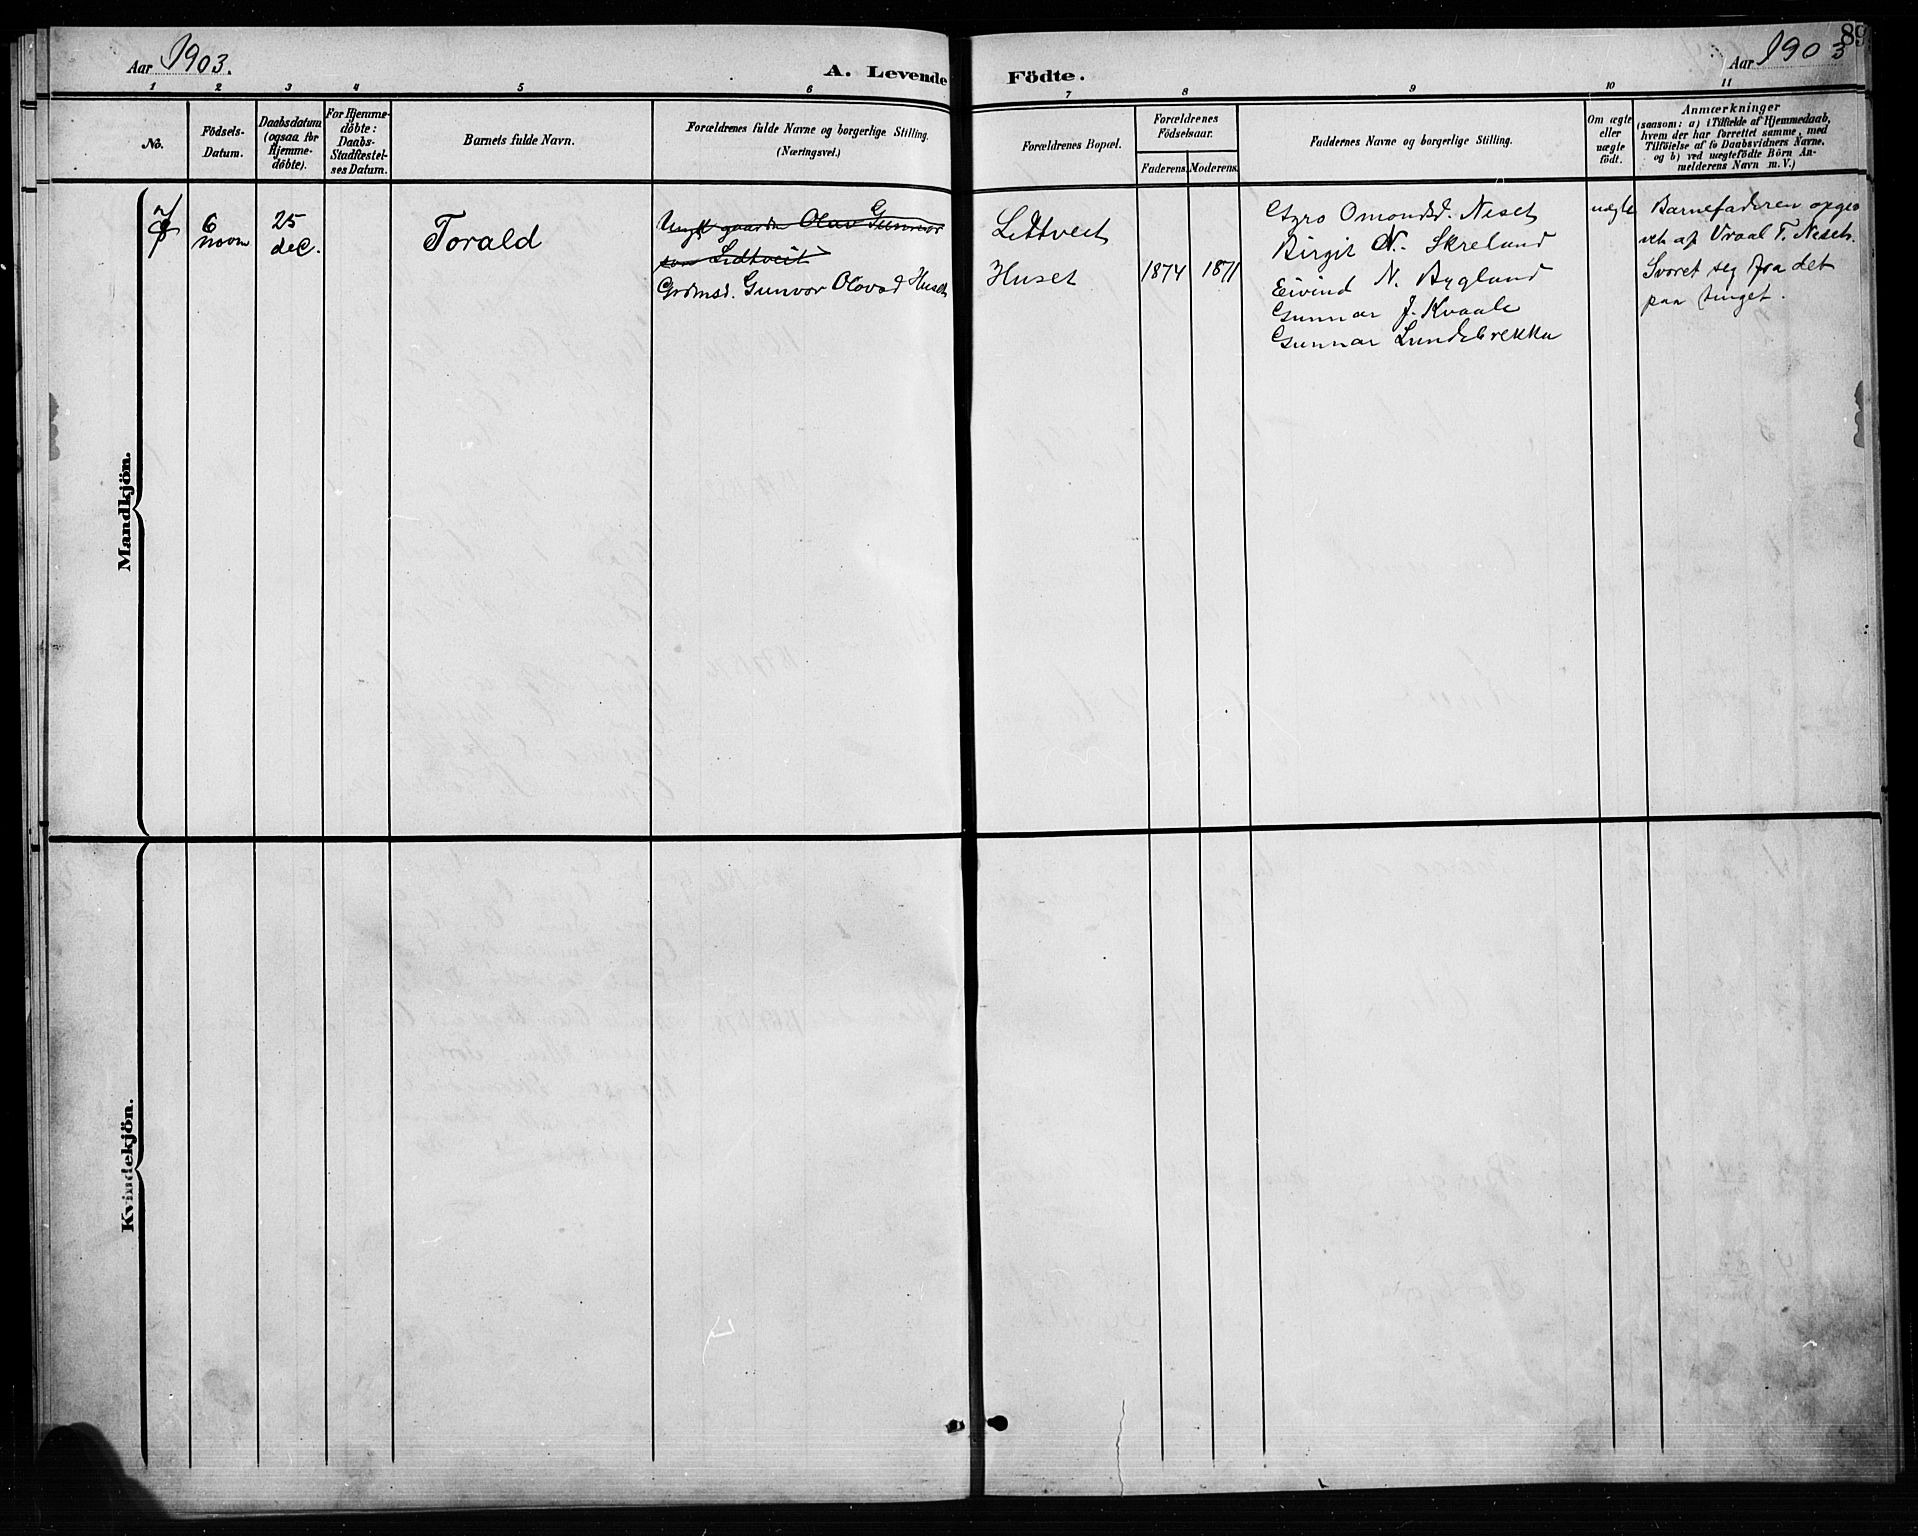 Aar 1903.
A. Levende Födte.
Aar 1903
89
1 2 3 4 5 6 7 8 9 10 11
No.
Födsels-
Datum.
Daabsdatum
(ogsaa for
Hjemme-
döbte).
For Hjemme-
döbte:
Daabs-
Stadfæstel-
ses Datum.
Barnets fulde Navn.
Forældrenes fulde Navne og borgerlige Stilling.
(Næringsvei.)
Forældrenes Bopæl.
Forældrenes
Födselsaar.
Faderens. Moderens.
Faddernes Navne og borgerlige Stilling.
Om ægte
eller
uægte
födt.
Anmærkninger
(saasom: a) i Tilfælde af Hjemmedaab,
hvem der har forrettet samme, med
Tilföielse af to Daabsvidners Navne,
og b) ved uægtefödte Börn An-
melderens Navn m. V.)
Mandkjön.
7
6
novm
25
dec.
Torald
Olav Gunnar
son Lidtveit
Gunvor Olavsd Huset
Littveit
Huset
1874 1871
Gyro Omondsd. Neset
Birgit N. Skreland
Eivind N. Bygland
Gunnar J. Kvaale
Gunnar Lundebrekka
uægte
Barnefaderen opgi
vet af Vraal T. Neset.
Svoret seg fra det
paa tinget.
Kvindekjön.